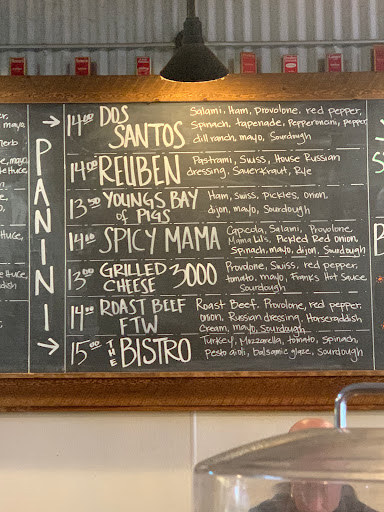 PANINI
14⁰⁰ DOS SANTOS
Salami, Ham, Provolone, red pepper,
Spinach, Tapenade, Pepperoncini, pepper
dill ranch, mayo, Sourdough
14⁰⁰ REUBEN
Pastrami, Swiss, House Russian
dressing, Sauerkraut, Rye
13⁵⁰ YOUNGS BAY
of PIGS
Ham, Swiss, pickles, onion,
dijon, mayo, Sourdough
14⁰⁰ SPICY MAMA
Capicola, Salami, Provolone
Mama Lil's, Pickled Red onion,
Spinach, mayo, dijon, Sourdough
13⁰⁰ GRILLED
CHEESE 3000
Provolone, Swiss, red pepper,
tomato, mayo, Frank's Hot Sauce,
Sourdough
14⁰⁰ ROAST BEEF
FTW
Roast Beef, Provolone, red pepper,
onion, Russian dressing, Horseradish
Cream, mayo, Sourdough
15⁰⁰ THE BISTRO
Turkey, Mozzarella, tomato, Spinach,
pesto aioli, balsamic glaze, Sourdough